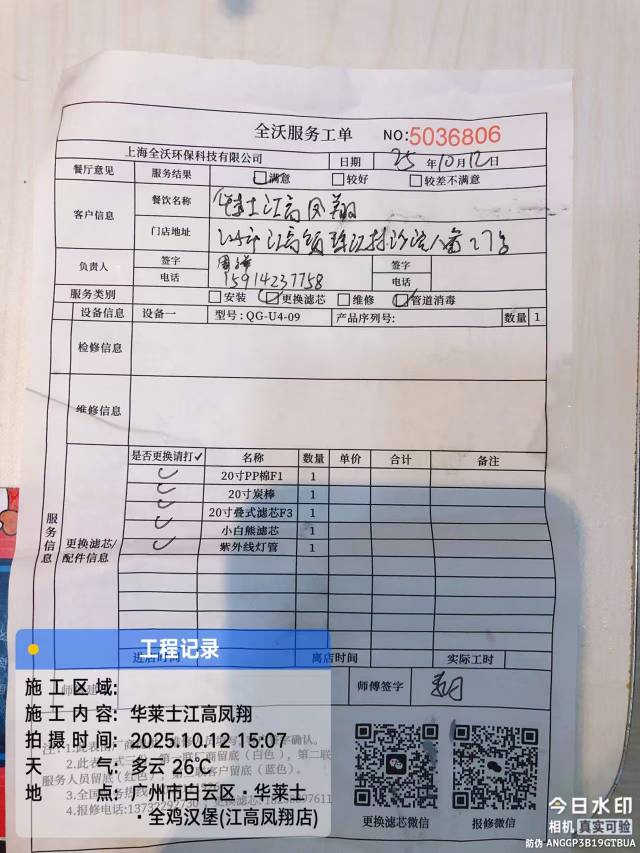 全沃服务工单 NO:5036806
上海全沃环保科技有限公司 日期 25年10月12日
餐厅意见 服务结果 满意 较好 较差不满意
客户信息 餐饮名称 华莱士江高凤翔
门店地址 江高镇
负责人 签字 签字
电话 15914237758 电话
服务类别 安装 更换滤芯 维修 管道消毒
设备信息 设备一 型号: QG-U4-09 产品序列号: 数量 1
检修信息
维修信息
服务信息
更换滤芯/配件信息
是否更换请打✓ 名称 数量 单价 合计 备注
✓ 20寸PP棉F1 1
✓ 20寸炭棒 1
✓ 20寸叠式滤芯F3 1
✓ 小白熊滤芯 1
✓ 紫外线灯管 1
进店时间 离店时间 实际工时
师傅签字
工程记录
施工区域:
施工内容: 华莱士江高凤翔
拍摄时间: 2025.10.12 15:07
天气: 多云 26℃
地点: 广州市白云区·华莱士·全鸡汉堡(江高凤翔店)
更换滤芯微信 报修微信
今日水印
相机 真实可验
防伪 ANGGP3B19GTBUA